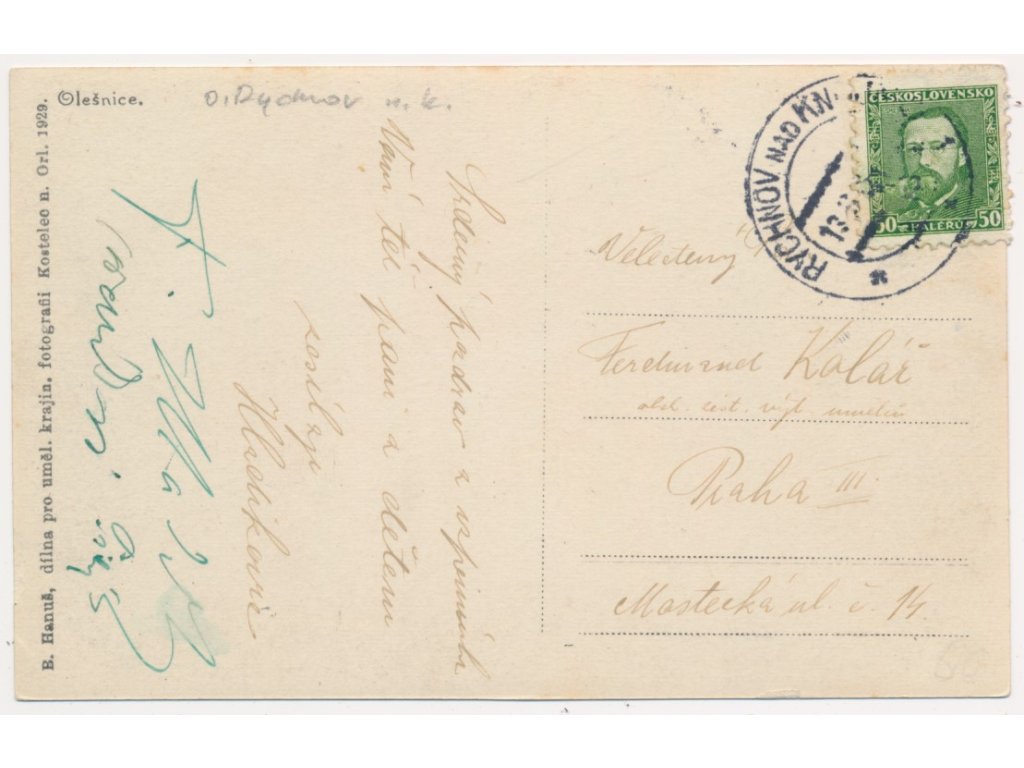 Olešnice.
o. Rychnov n. k.
B. Hanuš, dílna pro uměl. krajin. fotografii Kostelec n. Orl. 1929.
Srdečný pozdrav a vzpomínku
Vám též paní a dětem
zasílají
Hladíkovi
RYCHNOV NAD KN.
ČESKOSLOVENSKO
50 HALÉŘŮ 50
Velectený
Ferdinand Kolář
Praha III
Mostecká ul. č. 14
50